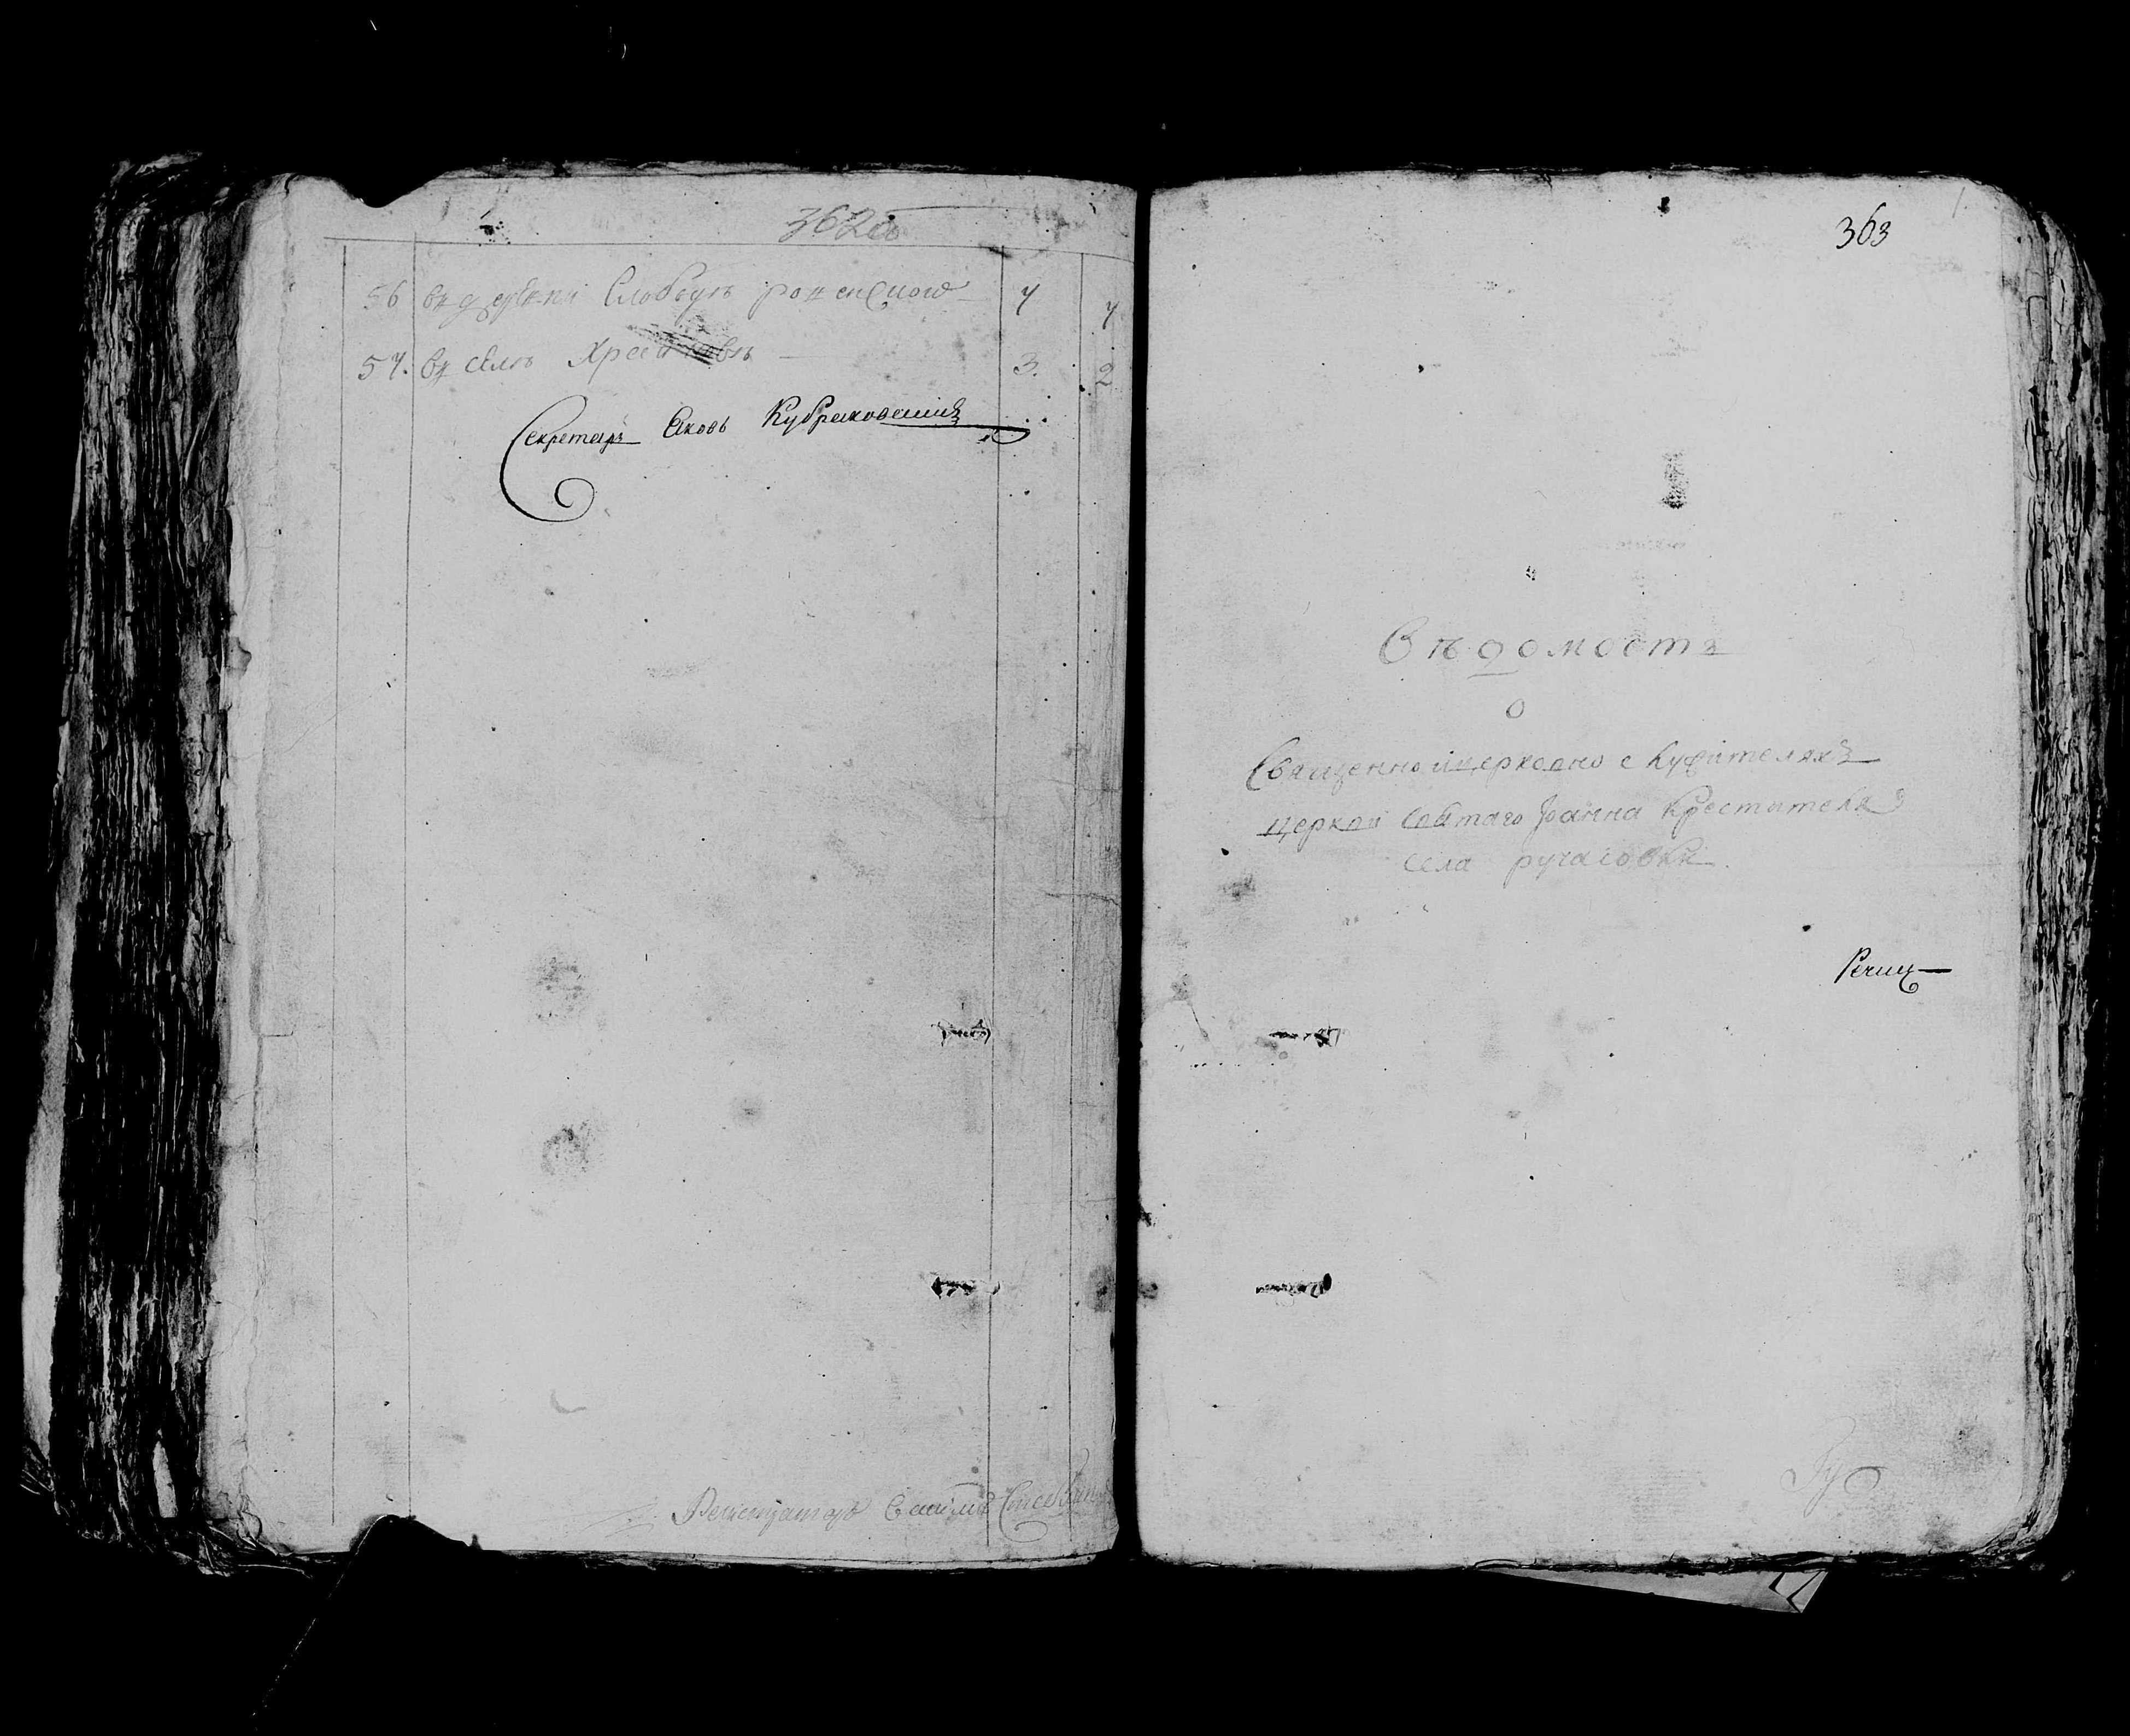 362об
56 въ деревни Слободѣ роженской 7 7
57. въ селѣ 3. 2
Секретарь Яковъ Кубраковскій
Регистраторъ
363
Вѣдомость
о
Священно и церковно служителяхъ
церкви святаго Іоанна Крестителя
села ручаіовки.
Речиц
Ру